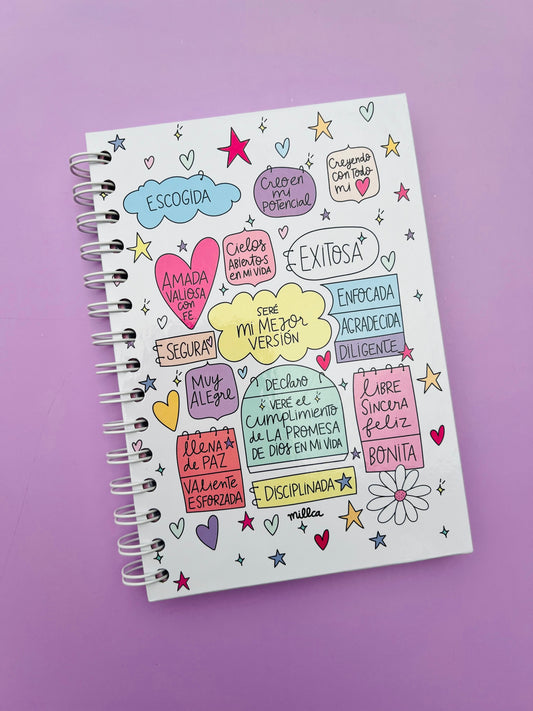 ESCOGIDA
Creo en
mi
POTENCIAL
Creyendo
con todo
mi
AMADA
VALIOSA
con
FE
Cielos
ABIERTOS
EN MI VIDA
EXITOSA
SERÉ
MI MEJOR
VERSIÓN
ENFOCADA
AGRADECIDA
DILIGENTE
SEGURA
MUY
ALEGRE
DECLARO
VERÉ el
CUMPLIMIENTO
de LA PROMESA
DE DIOS EN MI VIDA
LIBRE
SINCERA
feliz
BONITA
LLENA
de PAZ
VALIENTE
ESFORZADA
DISCIPLINADA
millca